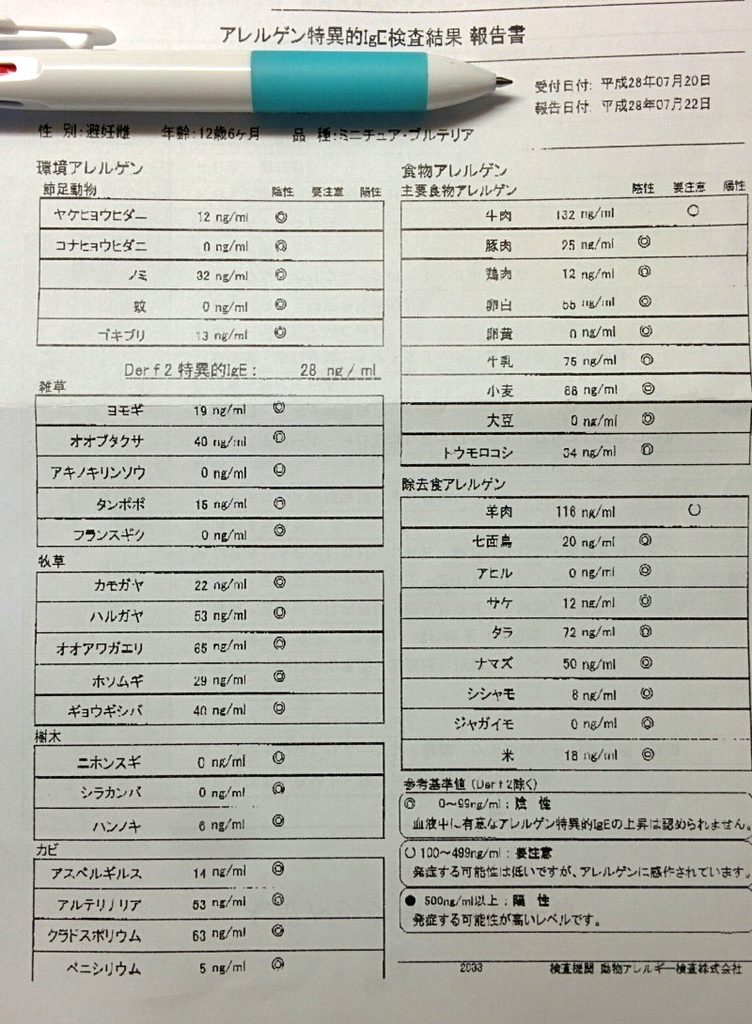 アレルゲン特異的IgE検査結果 報告書
受付日付: 平成28年07月20日
報告日付: 平成28年07月22日
性 別:避妊雌 年齢:12歳6ヶ月 品 種:ミニチュア・ブルテリア
環境アレルゲン
節足動物 陰性 要注意 陽性
ヤケヒョウヒダニ 12 ng/ml ◎
コナヒョウヒダニ 0 ng/ml ◎
ノミ 32 ng/ml ◎
蚊 0 ng/ml ◎
ゴキブリ 13 ng/ml ◎
Der f 2 特異的IgE: 28 ng / ml
雑草
ヨモギ 19 ng/ml ◎
オオブタクサ 40 ng/ml ◎
アキノキリンソウ 0 ng/ml ◎
タンポポ 15 ng/ml ◎
フランスギク 0 ng/ml ◎
牧草
カモガヤ 22 ng/ml ◎
ハルガヤ 53 ng/ml ◎
オオアワガエリ 65 ng/ml ◎
ホソムギ 29 ng/ml ◎
ギョウギシバ 40 ng/ml ◎
樹木
ニホンスギ 0 ng/ml ◎
シラカンバ 0 ng/ml ◎
ハンノキ 6 ng/ml ◎
カビ
アスペルギルス 14 ng/ml ◎
アルテリナリア 53 ng/ml ◎
クラドスポリウム 63 ng/ml ◎
ペニシリウム 5 ng/ml ◎
食物アレルゲン
主要食物アレルゲン 陰性 要注意 陽性
牛肉 132 ng/ml ○
豚肉 25 ng/ml ◎
鶏肉 12 ng/ml ◎
卵白 55 ng/ml ◎
卵黄 0 ng/ml ◎
牛乳 75 ng/ml ◎
小麦 88 ng/ml ◎
大豆 0 ng/ml ◎
トウモロコシ 34 ng/ml ◎
除去食アレルゲン
羊肉 116 ng/ml ○
七面鳥 20 ng/ml ◎
アヒル 0 ng/ml ◎
サケ 12 ng/ml ◎
タラ 72 ng/ml ◎
ナマズ 50 ng/ml ◎
シシャモ 8 ng/ml ◎
ジャガイモ 0 ng/ml ◎
米 18 ng/ml ◎
参考基準値 (Der f 2除く)
◎ 0～99ng/ml : 陰 性
血液中に有意なアレルゲン特異的IgEの上昇は認められません。
○ 100～499ng/ml : 要注意
発症する可能性は低いですが、アレルゲンに感作されています。
● 500ng/ml以上 : 陽 性
発症する可能性が高いレベルです。
2033 検査機関 動物アレルギー検査株式会社